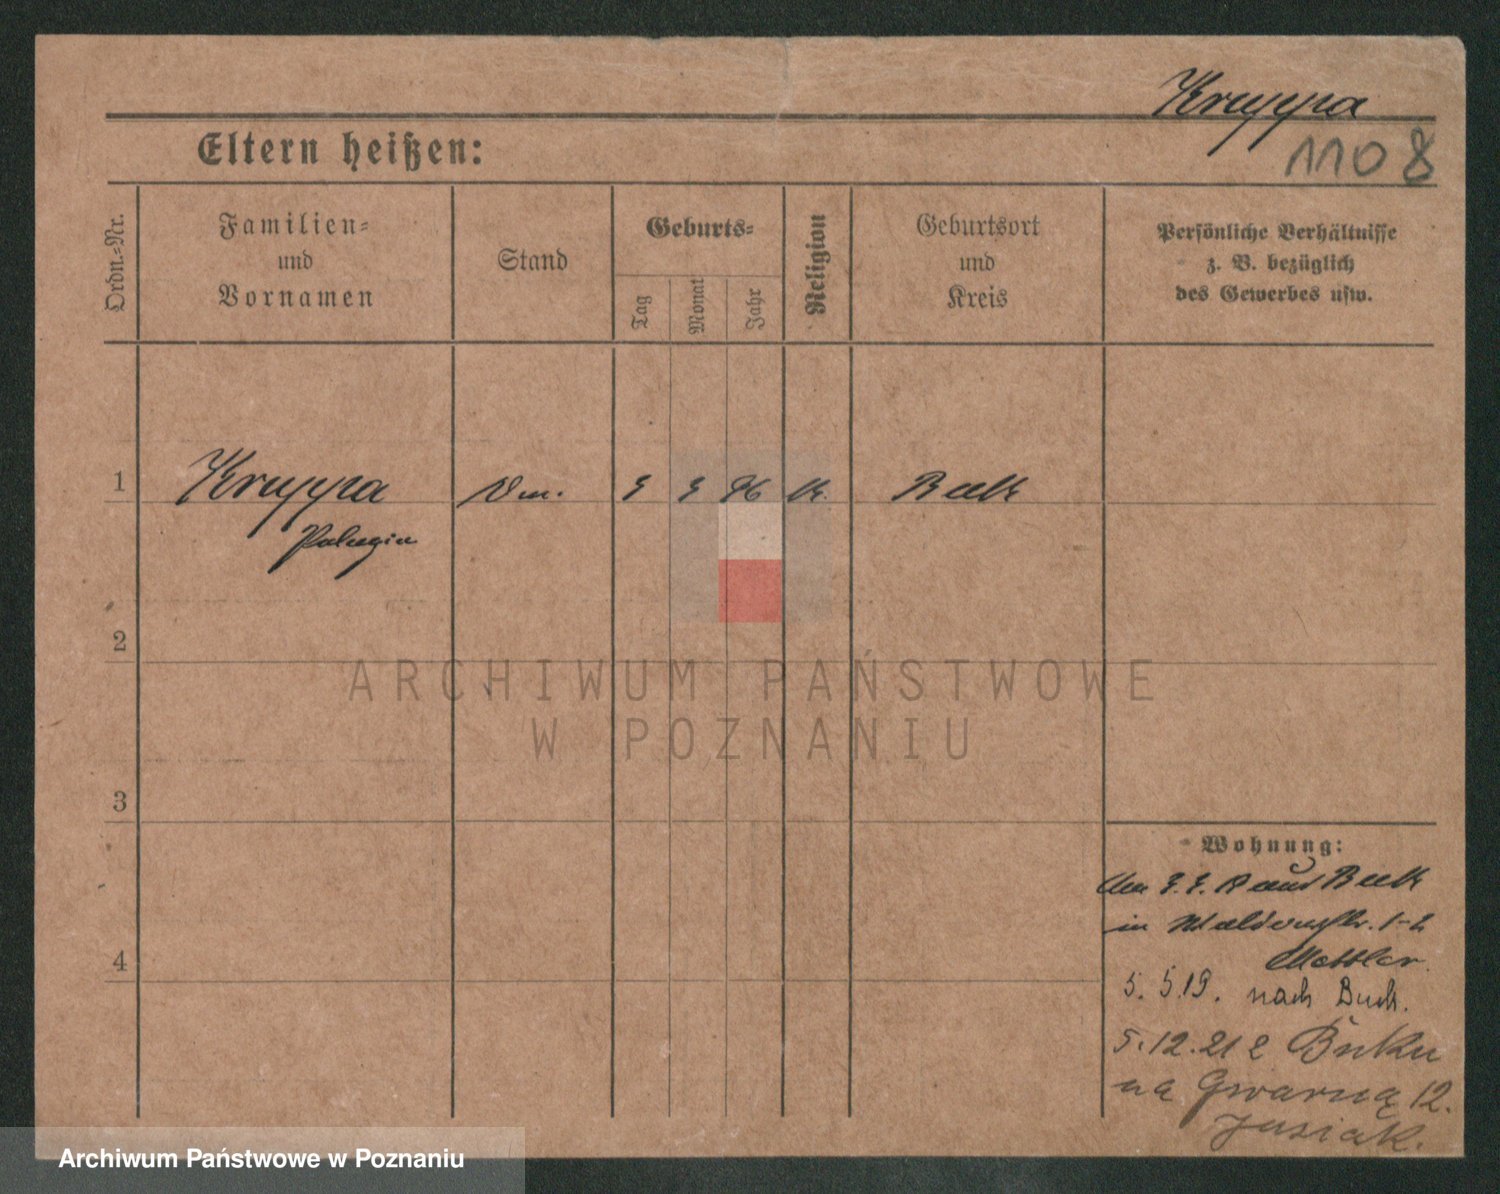 Kruppa
1108
Eltern heißen:
Ordn.-Nr.
Familien-
und
Vornamen
Stand
Geburts-
Tag
Monat
Jahr
Religion
Geburtsort
und
Kreis
Persönliche Verhältnisse
z. B. bezüglich
des Gewerbes usw.
1
Kruppa
Pelagia
3 3 96 k.
Buk
2
ARCHIWUM PAŃSTWOWE
W POZNANIU
3
Wohnung:
aus Buk
in
4
5. 5.19. nach Buk.
5.12.21 z Buku
na Gwarną 12.
Jasiak.
Archiwum Państwowe w Poznaniu